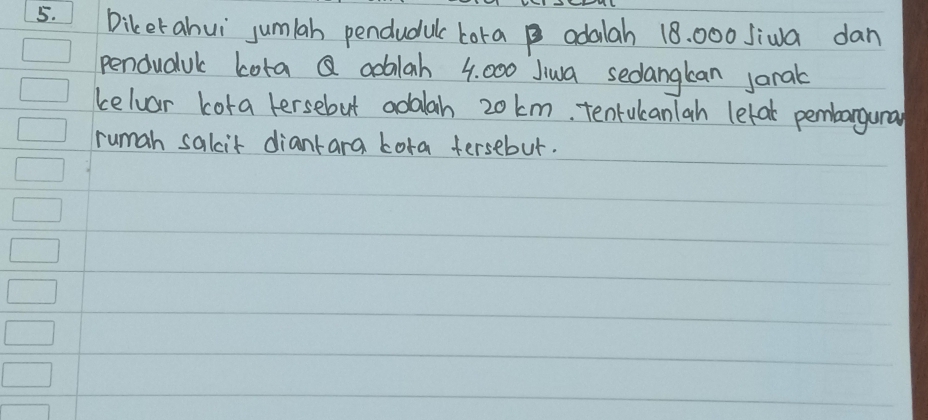 5. Diketahui jumlah penduduk kota P adalah 18.000 Jiwa dan
penduduk kota Q adalah 4.000 Jiwa sedangkan jarak
keluar kota tersebut adalah 20 km. Tentukanlah letak pembangunan
rumah sakit diantara kota tersebut.